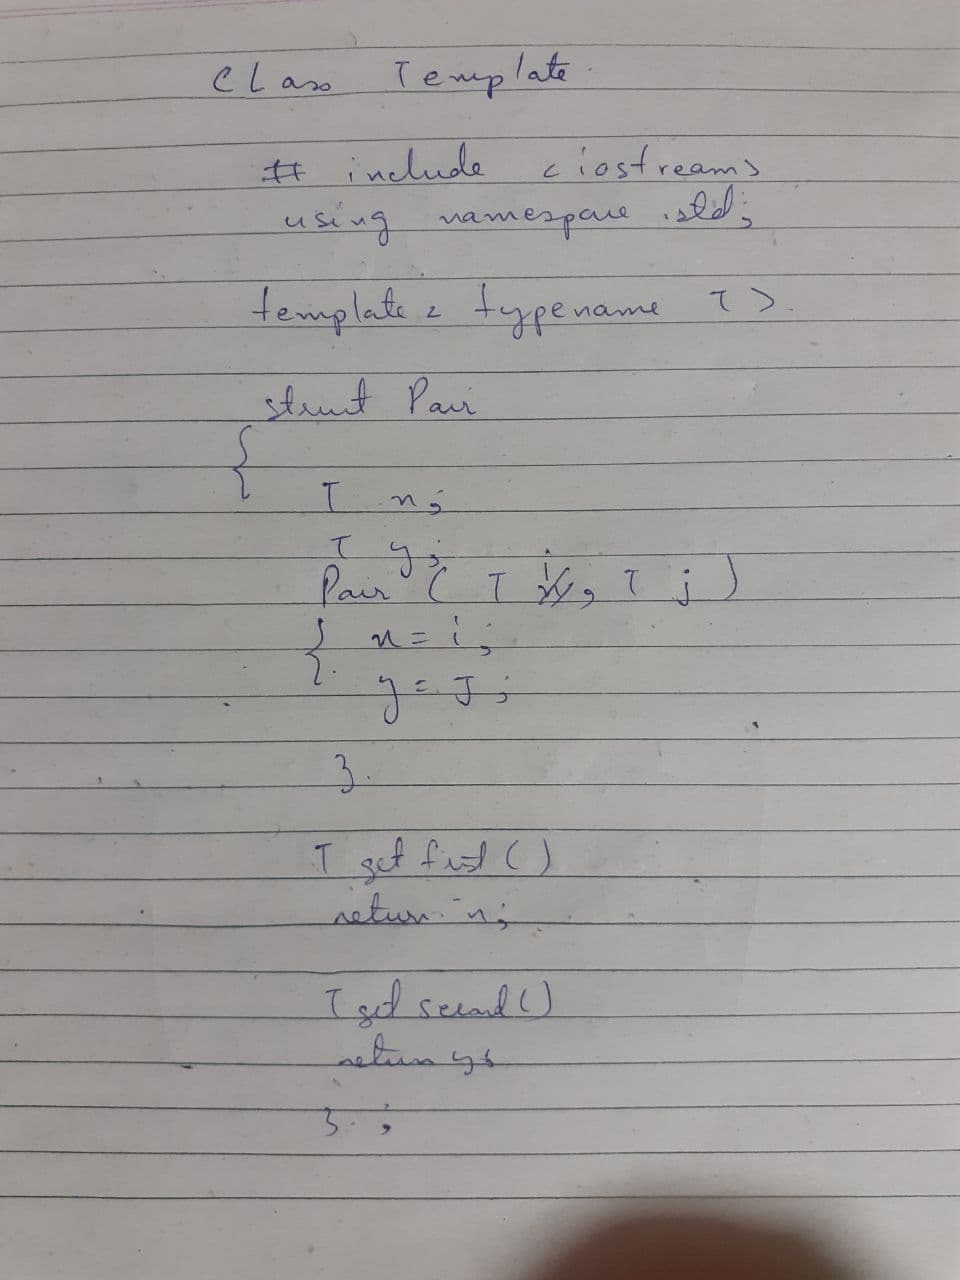 Class Template
# include <iostream>
using namespace std;
template < typename T >
struct Pair
{
T x;
T y;
Pair ( T i, T j )
{ x = i;
y = J;
}
T get first ( )
return x;
T get second ( )
return y;
} ;